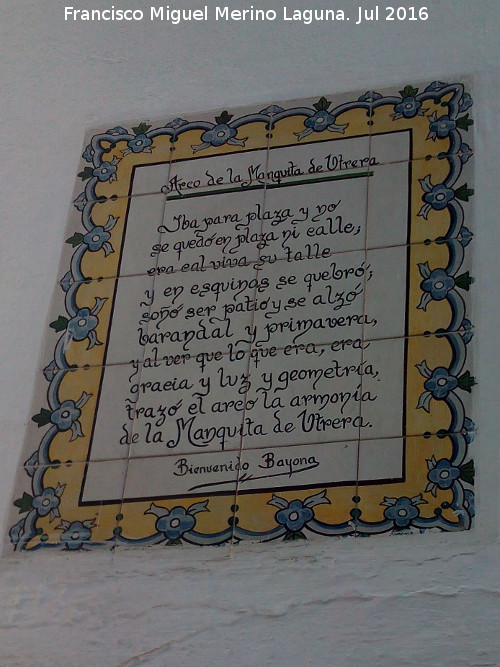 Francisco Miguel Merino Laguna. Jul 2016
Arco de la Manquita de Utrera
Iba para plaza y no
se quedó en plaza ni calle,
era cal viva su talle
y en esquinas se quebró;
soñó ser patio y se alzó
barandal y primavera,
y al ver que lo que era, era
gracia y luz y geometría,
trazó el arco la armonía
de la Manquita de Utrera.
Bienvenido Bayona